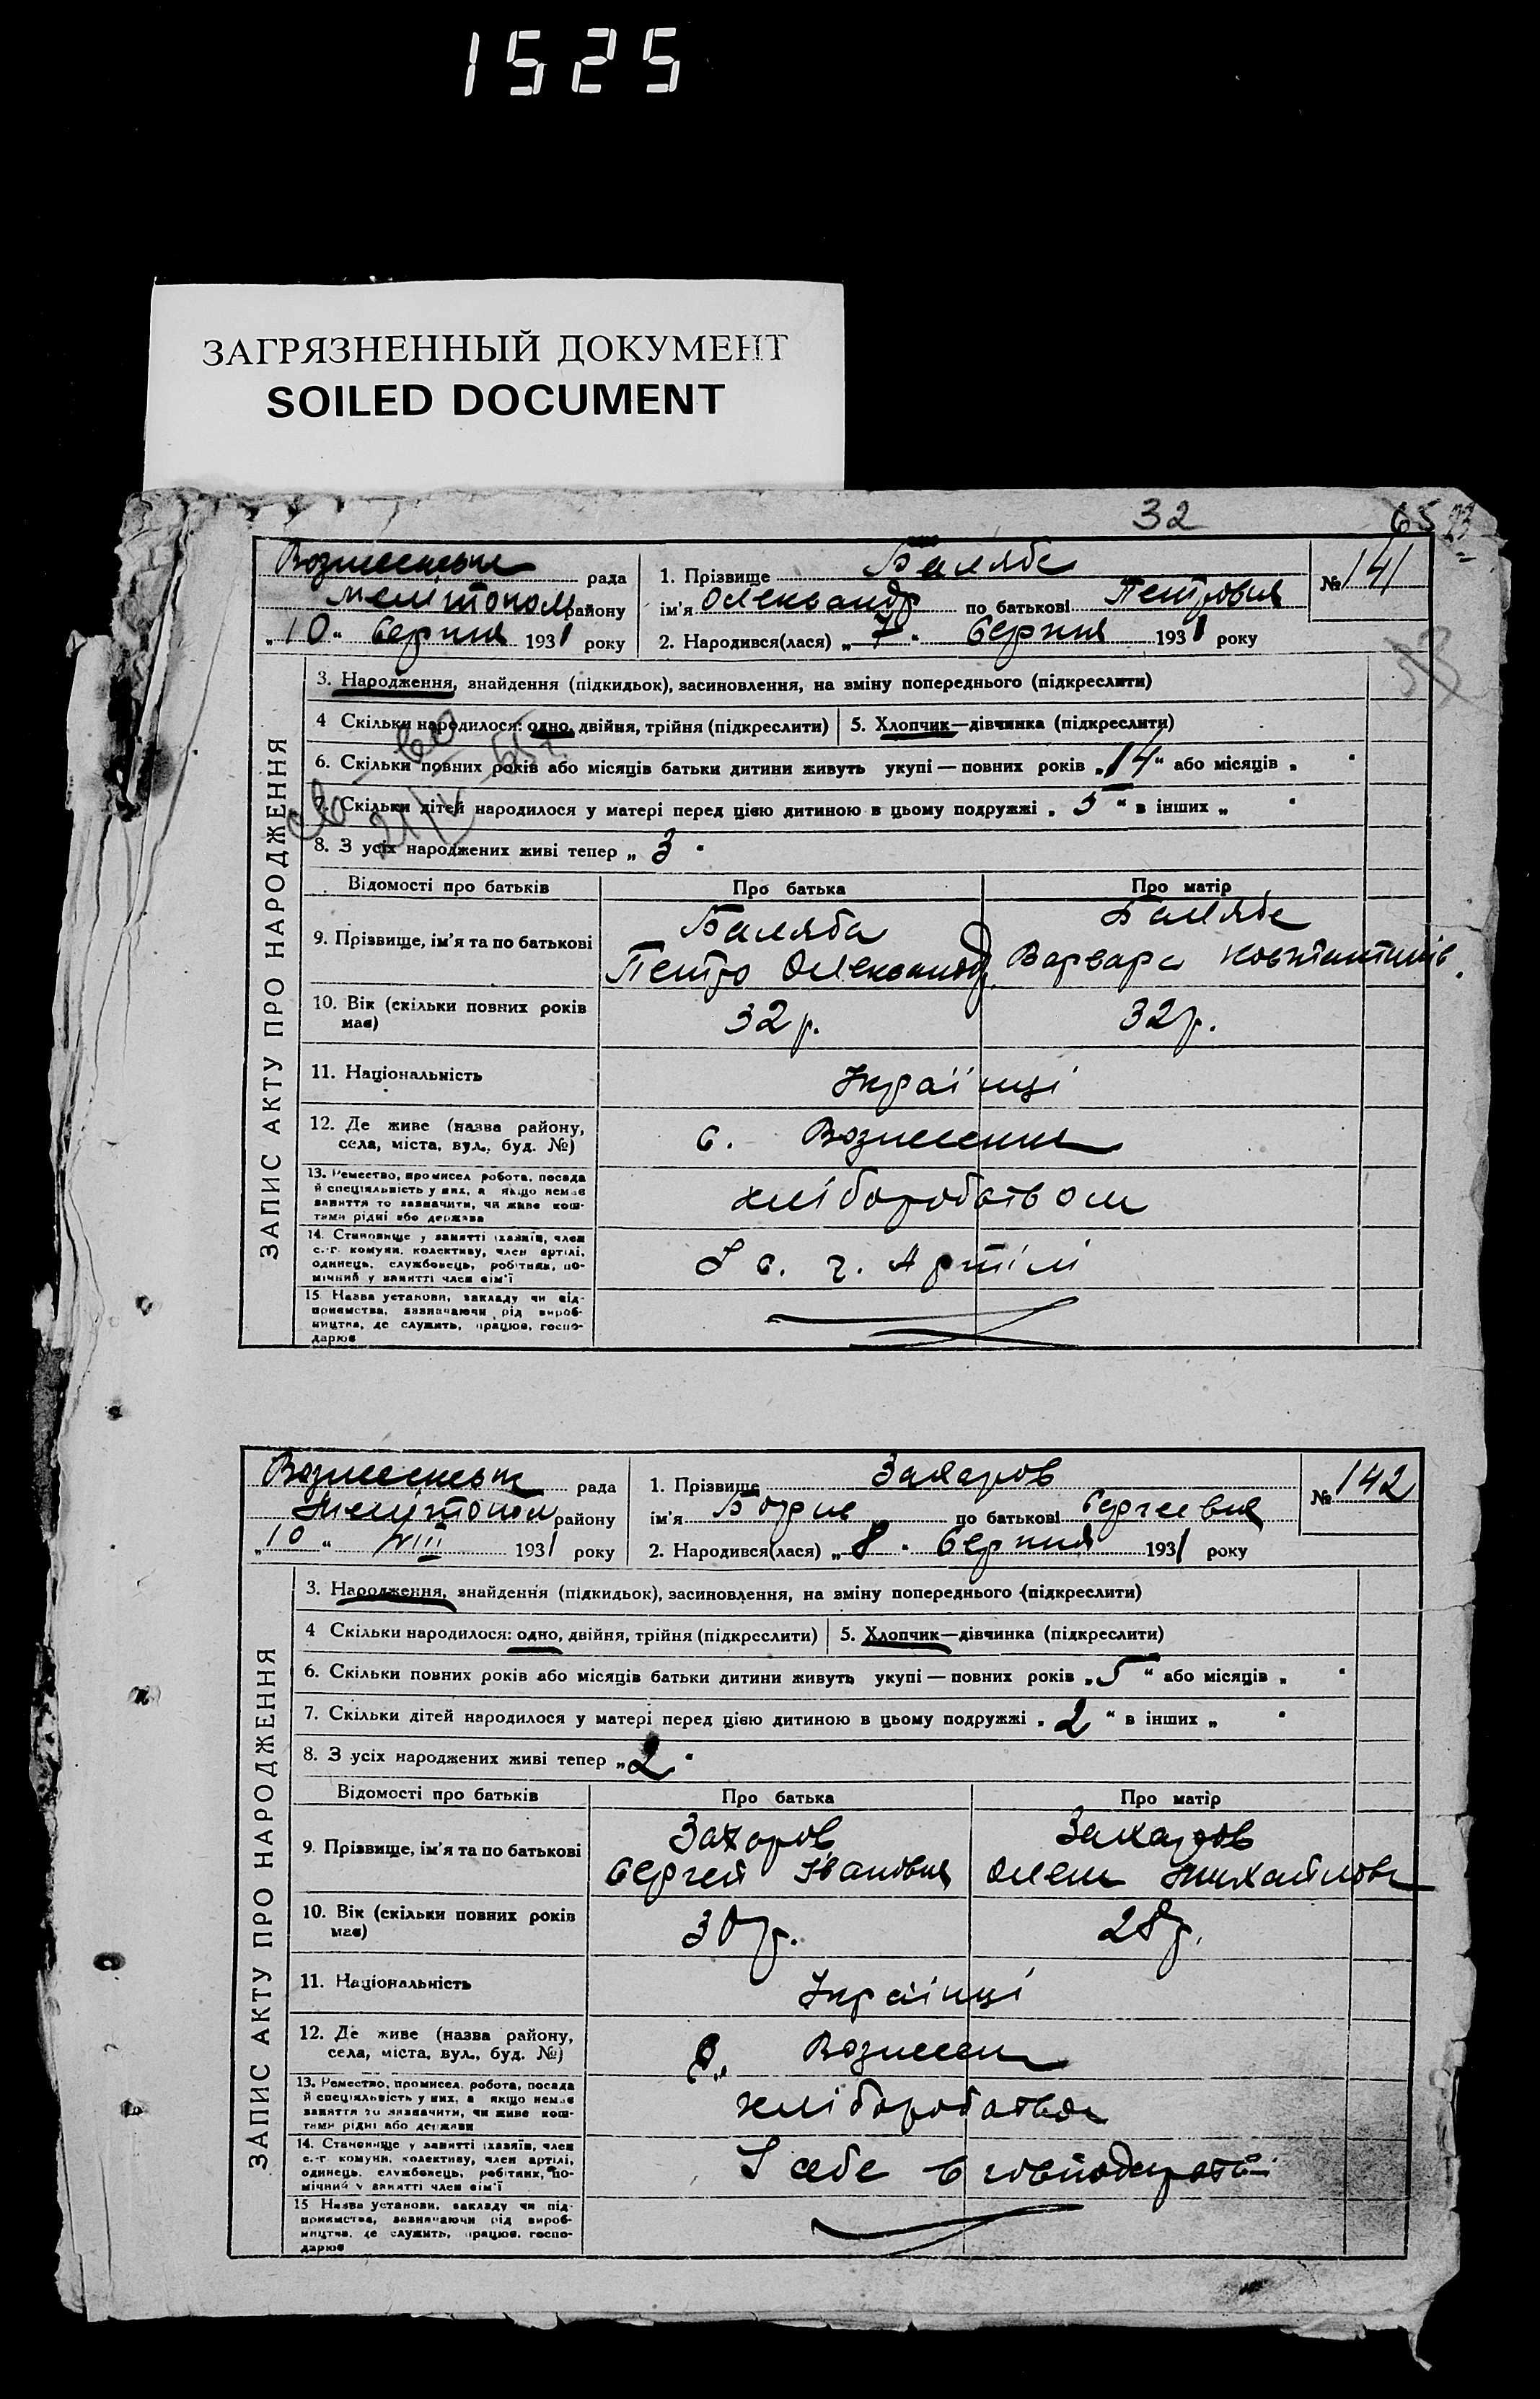 1525
ЗАГРЯЗНЕННЫЙ ДОКУМЕНТ
SOILED DOCUMENT
32 65
ЗАПИС АКТУ ПРО НАРОДЖЕННЯ
Вознесенська рада
Мелітопол району
„10" серпня 1931 року
1. Прізвище Баляба
ім'я Олександр по батькові Петрович
2. Народився(лася) „7" серпня 1931 року
№ 141
3. Народження, знайдення (підкидьок), засиновлення, на зміну попереднього (підкреслити)
4 Скільки народилося: одно, двійня, трійня (підкреслити) 5. Хлопчик—дівчинка (підкреслити)
6. Скільки повних років або місяців батьки дитини живуть укупі — повних років „14" або місяців „ "
7. Скільки дітей народилося у матері перед цією дитиною в цьому подружжі „5" в інших „ "
8. З усіх народжених живі тепер „3"
Відомості про батьків Про батька Про матір
9. Прізвище, ім'я та по батькові
Баляба
Петро Олександр
Баляба
Варвара Костянтинів.
10. Вік (скільки повних років має)
32 р. 32 р.
11. Національність
Українці
12. Де живе (назва району,
села, міста, вул., буд. №)
с. Вознесенка
13. Ремество, промисел робота, посада
й спеціяльність у них, а якщо немає
заняття то зазначити, чи живе кош-
тами рідні або держава
хліборобством
14. Становище у занятті (хазяїн, член
с.-г. комуни, колективу, член артілі,
одинець, службовець, робітник, по-
мічний у занятті член сім'ї
с. г. Артілі
15. Назва установи, закладу чи під-
приємства, зазначаючи рід вироб-
ництва, де служить, працює, госпо-
дарює
ЗАПИС АКТУ ПРО НАРОДЖЕННЯ
Вознесенська рада
Мелітопол району
„10" VIII 1931 року
1. Прізвище Захаров
ім'я Борис по батькові Сергеевич
2. Народився(лася) „8" серпня 1931 року
№ 142
3. Народження, знайдення (підкидьок), засиновлення, на зміну попереднього (підкреслити)
4 Скільки народилося: одно, двійня, трійня (підкреслити) 5. Хлопчик—дівчинка (підкреслити)
6. Скільки повних років або місяців батьки дитини живуть укупі — повних років „5" або місяців „ "
7. Скільки дітей народилося у матері перед цією дитиною в цьому подружжі „2" в інших „ "
8. З усіх народжених живі тепер „2"
Відомості про батьків Про батька Про матір
9. Прізвище, ім'я та по батькові
Захаров
Сергей Іванович
Захаров
Олена Михайловн
10. Вік (скільки повних років має)
30 р. 28 р.
11. Національність
Українці
12. Де живе (назва району,
села, міста, вул., буд. №)
с. Вознесен
13. Ремество, промисел, робота, посада
й спеціяльність у них, а якщо немає
заняття то зазначити, чи живе кош-
тами рідні або держави
хліборобством
14. Становище у занятті (хазяїн, член
с.-г. комуни, колективу, член артілі,
одинець, службовець, робітник, по-
мічний у занятті член сім'ї
себе в господарстві
15 Назва установи, закладу чи під-
приємства, зазначаючи рід вироб-
ництва, де служить, працює, госпо-
дарює